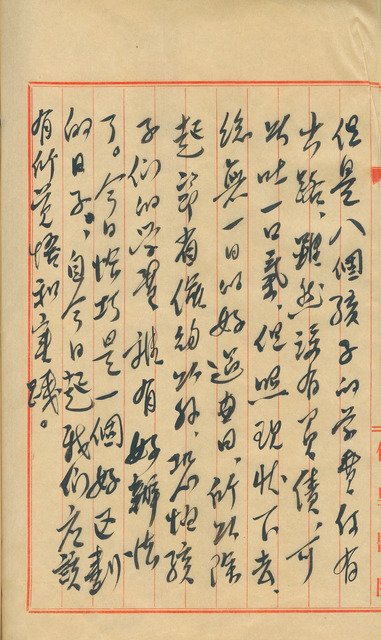 但是八個孩子的学費仍有
出路，雖然該有負債，可
以吐一口氣，但照現狀下去，
總無一日的好過曲日，所以除
起節省儉約以外，恐怕孩
子们的学費難有好辦法
了。今日恰巧是一個好区劃
的日子，自今日起我们应該
有所覚悟和実踐。